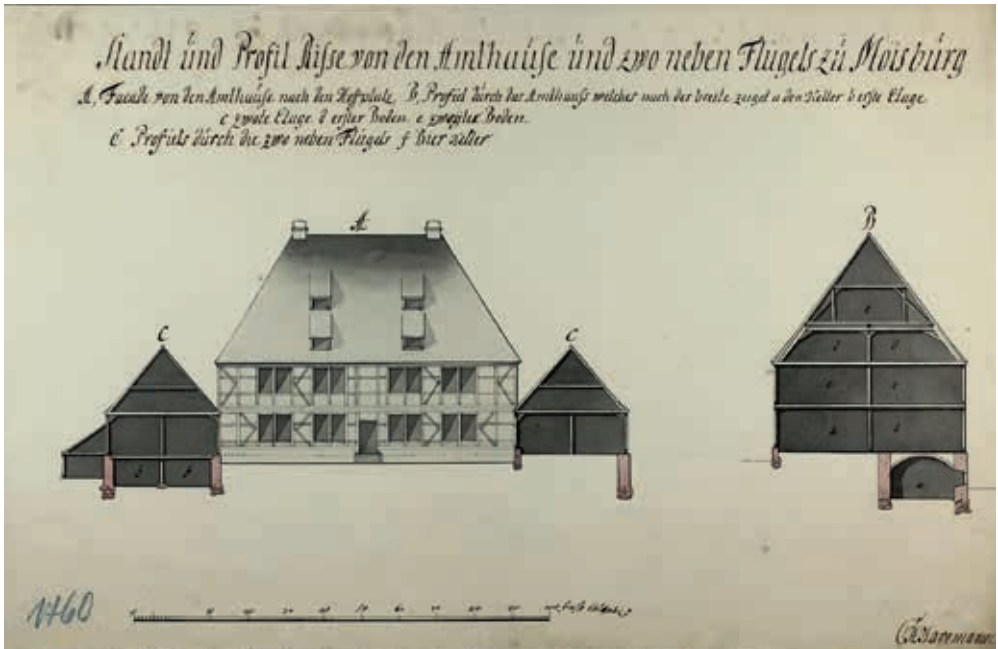 Standt und Profil Risse von den Amthause und zwo neben Flügels zu Moisburg
A, Facade von den Amthause nach den Hofplatz, B, Profiel durch das Amthauss welches nach der breite zeiget a den Keller b erste Etage
c zwote Etage d erster Boden e zweyter Boden
C Profiels durch die zwo neben Flügels f Bier Keller
A
B
C
C
1760